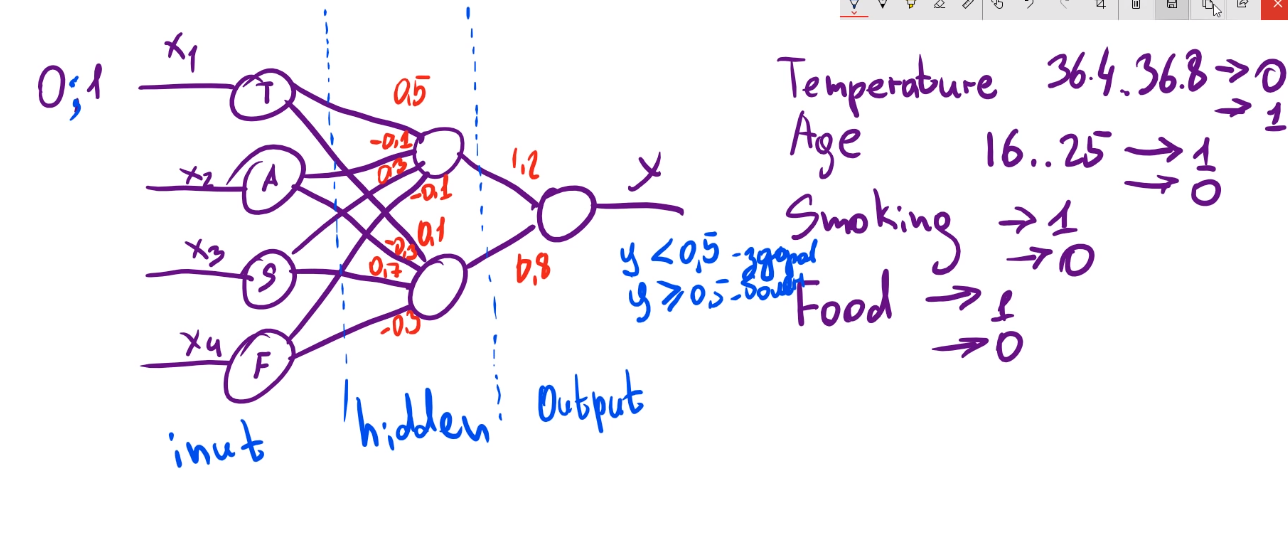 0;1
x1
T
x2
A
x3
S
x4
F
0,5
-0,1
0,3
-0,1
0,1
-0,3
0,7
-0,3
1,2
0,8
y
y < 0,5 - здоров
y ≥ 0,5 -
inut
hidden
Output
Temperature 36.4..36.8 → 0
→ 1
Age 16..25 → 1
→ 0
Smoking → 1
→ 0
Food → 1
→ 0